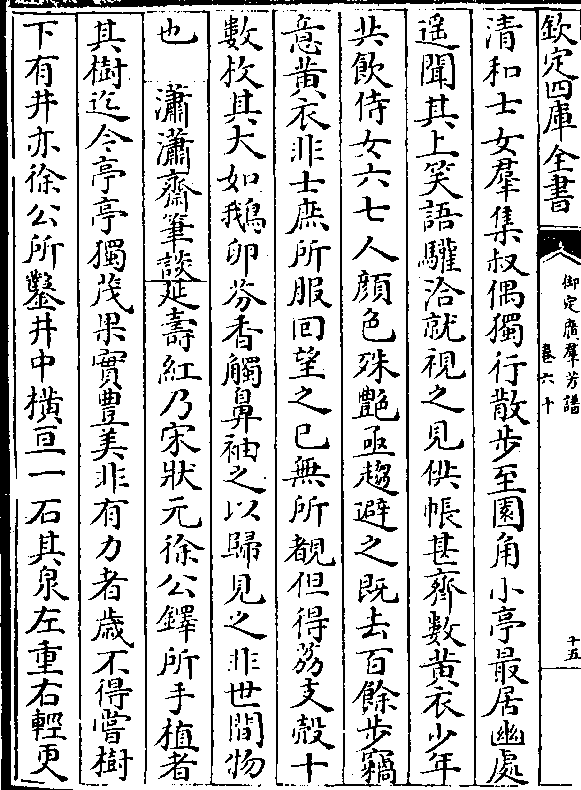 欽定四庫全書
御定廣羣芳譜
卷六十
十五
清和士女羣集叔偶獨行散步至園角小亭最居幽處
遥聞其上笑語驩洽就視之見供帳甚齊數黄衣少年
共飲侍女六七人顔色殊艷亟趨避之既去百餘步竊
意黄衣非士庶所服回望之已無所覩但得荔支殻十
數枚其大如鵝卵芬香觸鼻袖之以歸見之非世間物
也　瀟瀟齋筆談延壽紅乃宋狀元徐公鐸所手植者
其樹迄今亭亭獨茂果實豊美非有力者歲不得嘗樹
下有井亦徐公所鑿井中横亘一石其泉左重右輕更